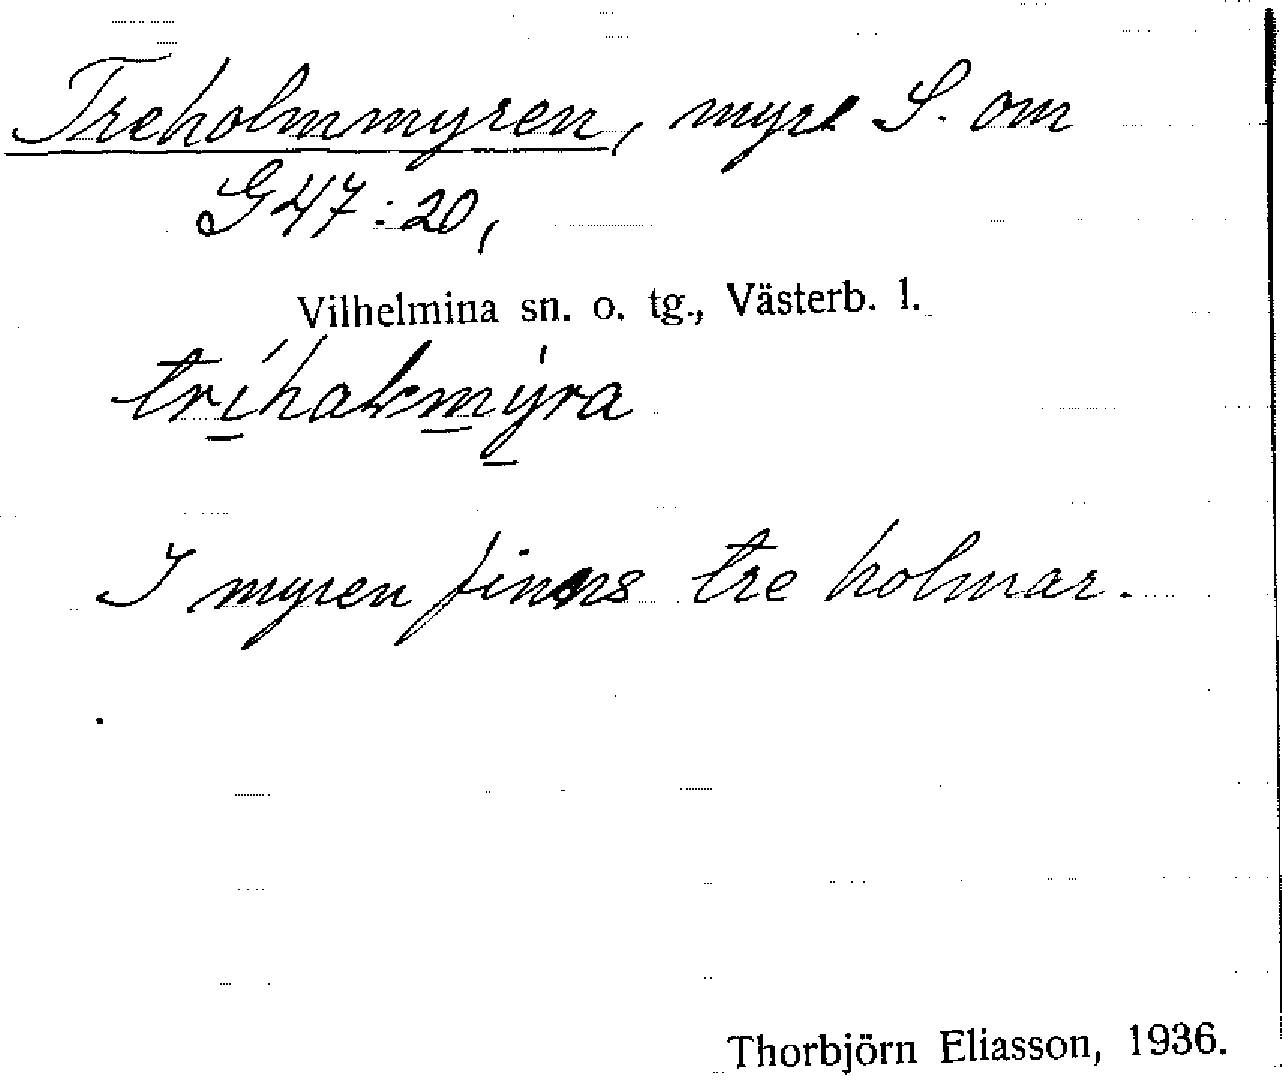 Treholmmyren, myrl S. om
G47:20,
Vilhelmina sn. o. tg., Västerb. l.
I myren finns tre holmar.
Thorbjörn Eliasson, 1936.